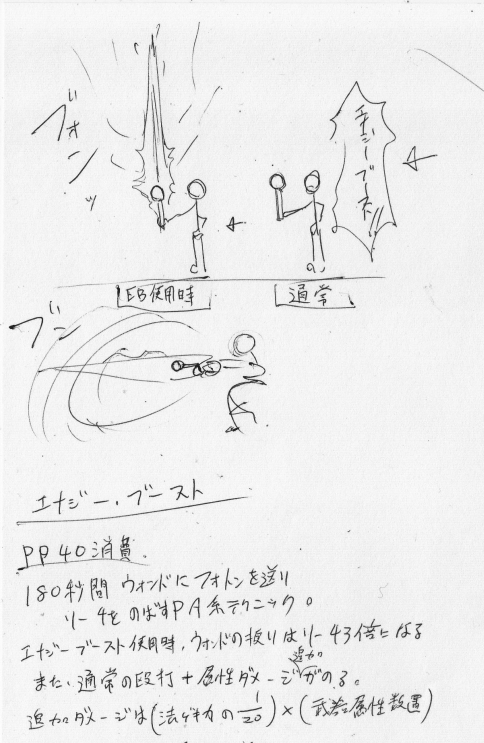 エナジーブースト!!
ブォンッ
通常
EB使用時
ブン
エナジー・ブースト
PP40消費.
180秒間 ウォンドにフォトンを送り
リーチをのばすPA系テクニック。
エナジーブースト使用時,ウォンドの扱りはリーチ3倍になる
また、通常の殴打+属性ダメージ追加がのる。
追加ダメージは(法撃力の1/20)×(武器属性数置)